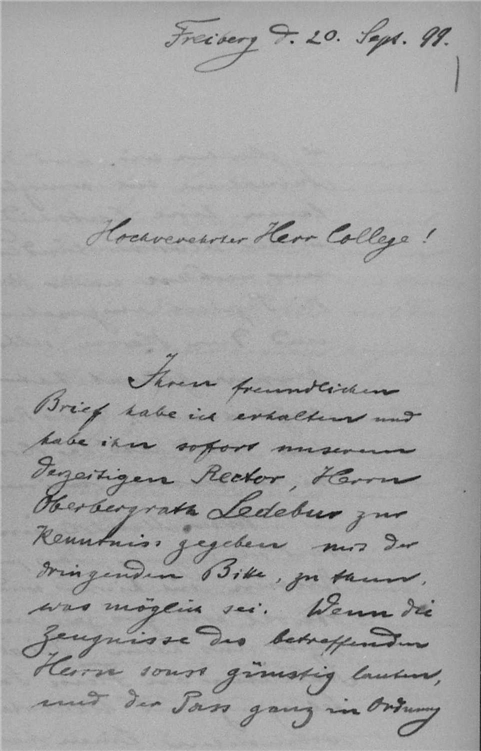 Freiberg d. 20. Sept. 99.
Hochverehrter Herr College!
Ihren freundlichen
Brief habe ich erhalten und
habe ihn sofort unserem
derzeitigen Rector, Herrn
Oberbergrath Ledebur zur
Kenntniss gegeben mit der
dringenden Bitte, zu thun,
was möglich sei. Wenn die
Zeugnisse des betreffenden
Herrn sonst günstig lauten,
und der Pass ganz in Ordnung